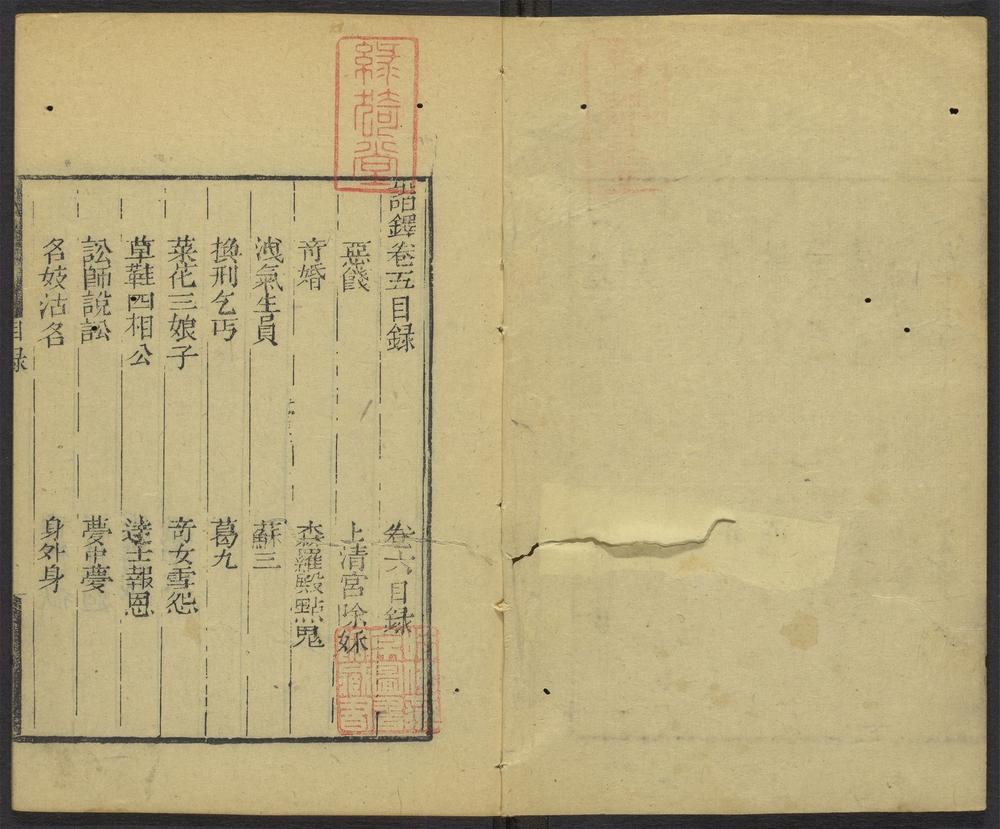 綠猗堂
諧鐸卷五目錄
惡餞
奇婚
洩氣生員
換刑乞丐
菜花三娘子
草鞋四相公
訟師說訟
名妓沽名
卷六目錄
上清宮除妖
森羅殿點鬼
蘇三
葛九
奇女雪怨
達士報恩
夢中夢
身外身
目錄